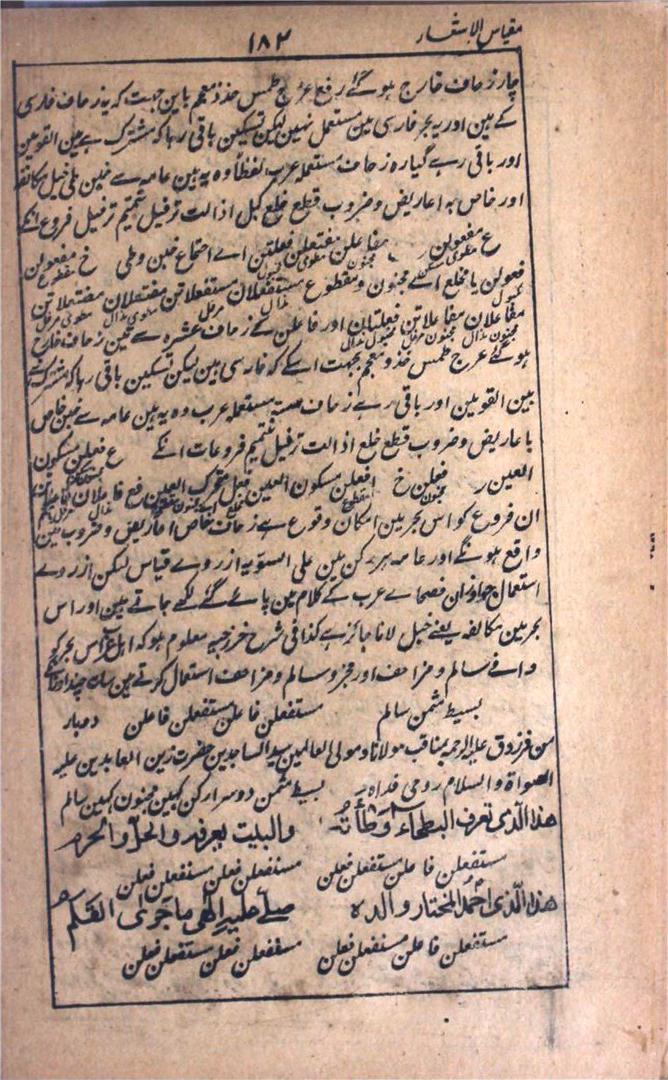 مقیاس الاشعار
۱۸۲
چار زحاف خارج ہو گئے رفع عرج طمس حذذ معجم باین جہت کہ یہ زحاف فارسی
کے ہین اور یہ بحر فارسی مین مستعمل نہین لیکن تسکین باقی رہا کہ مشترک ہے بین القومین
اور باقی رہے گیارہ زحاف مستعملہ عرب لفظاً وہ یہ ہین عامہ سے خبن طی خبل مکانفہ
اور خاص بہ اعاریض و ضروب قطع خلع کبل اذالت ترفیل تتمیم ترفیل فروع انکے
ع مفعولن ر مفاعلن مفتعلن فعلتن اے اجتماع خبن وطی خ مفعولن
مطوی مسکن مخبون مطوی مخبول مقطوع
فعولن یا مخلع اے مخبون و مقطوع مستفعلان مستفعلاتن مفتعلان مفتعلاتن
مکبول مذال مرفل مطوی مذال مطوی مرفل
مفاعلان مفاعلاتن فعلتان اور فاعلن کے زحاف عشرہ سے تین زحاف خارج
مخبون مذال مخبون مرفل مخبول مذال
ہو گئے عرج طمس حذذ معجم بجہت اسکے کہ فارسی ہین لیکن تسکین باقی رہا کہ مشترک ہے
بین القومین اور باقی رہے زحاف ستہ مستعملہ عرب وہ یہ ہین عامہ سے خبن خاص
با عاریض و ضروب قطع خلع اذالت ترفیل تتمیم فروعات انکے ع فعلن بسکون
العین ر فعلن خ فعلن بسکون العین فعل متحرک العین فع فاعلان
مخبون مقطوع مذال
ان فروع کو اس بحر مین امکان وقوع ہے زحاف خاص اعاریض و ضروب مین
واقع ہونگے اور عامہ ہر رکن مین علی السویہ از روے قیاس لیکن از روے
استعمال جواوزان فصحاے عرب کے کلام مین پائے گئے لکھے جاتے ہین اور اس
بحر مین مکالفہ یعنے خبل لانا جائز ہے کذا فی شرح خزرجیہ معلوم ہو کہ اہل عرب اس بحر کو
وافے سالم و مزاحف اور مجزو سالم و مزاحف استعمال کرتے ہین
بسیط مثمن سالم مستفعلن فاعلن مستفعلن فاعلن دوبار
من فرزدق علیہ الرحمہ بمناقب مولانا و مولی العالمین سید الساجدین حضرت زین العابدین علیہ
الصلوۃ والسلام روحی فداہ بسیط مثمن دوسرا رکن کہین مخبون کہین سالم
هذا الذی تعرف البطحاء وطأته والبیت یعرفه والحل والحرم
مستفعلن فاعلن مستفعلن فعلن مستفعلن فعلن مستفعلن فعلن
هذا الذی احمد المختار والده صلے علیه الٰهی ما جری القلم
مستفعلن فاعلن مستفعلن فعلن مستفعلن فعلن مستفعلن فعلن